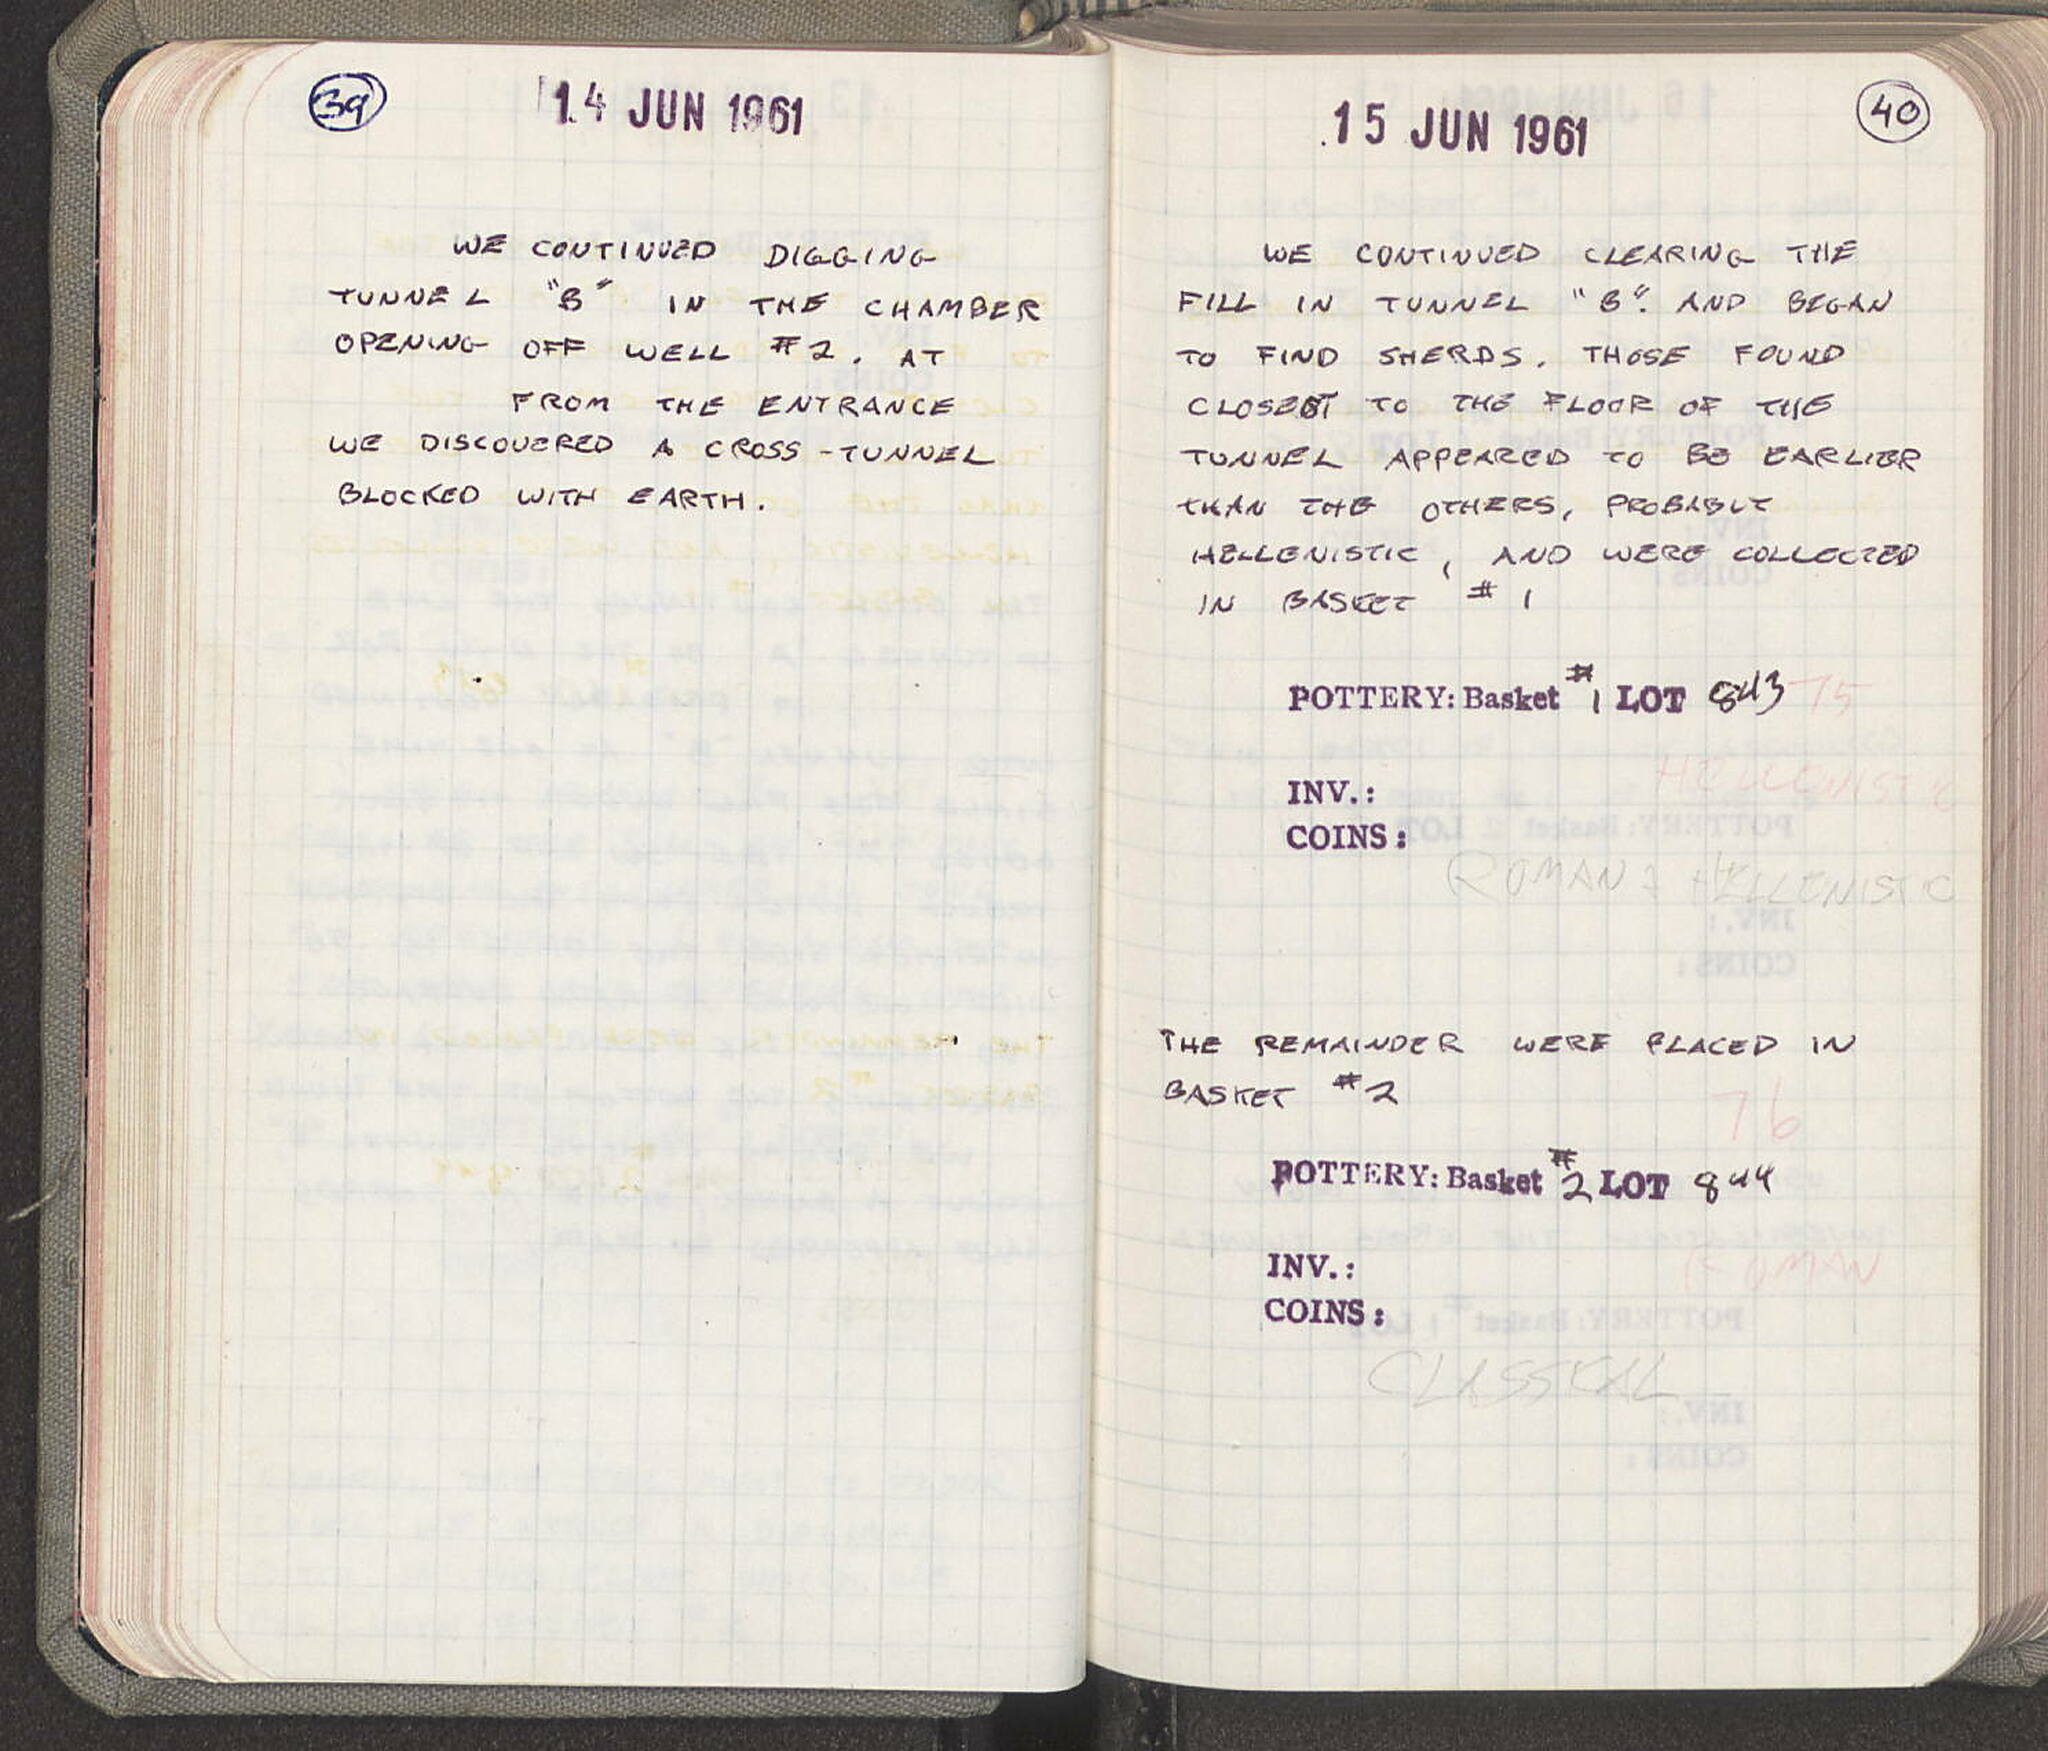 39
14 JUN 1961
WE CONTINUED DIGGING
TUNNEL "B" IN THE CHAMBER
OPENING OFF WELL #2. AT
FROM THE ENTRANCE
WE DISCOVERED A CROSS-TUNNEL
BLOCKED WITH EARTH.
40
15 JUN 1961
WE CONTINUED CLEARING THE
FILL IN TUNNEL "B". AND BEGAN
TO FIND SHERDS. THOSE FOUND
CLOSEST TO THE FLOOR OF THE
TUNNEL APPEARED TO BE EARLIER
THAN THE OTHERS, PROBABLY
HELLENISTIC, AND WERE COLLECTED
IN BASKET #1
POTTERY: Basket #1 LOT 843 75
INV.: HELLENISTIC
COINS:
ROMAN & HELLENISTIC
THE REMAINDER WERE PLACED IN
BASKET #2
76
POTTERY: Basket #2 LOT 844
INV.: ROMAN
COINS:
CLASSICAL